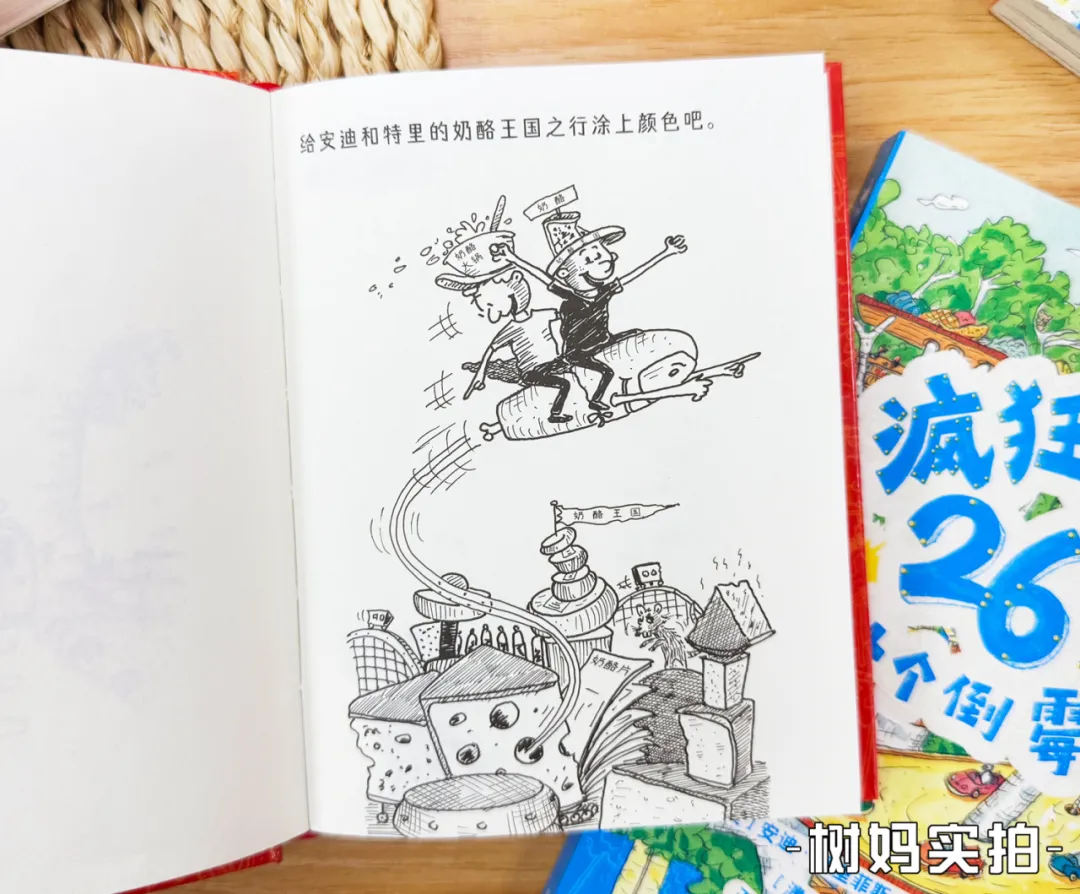 给安迪和特里的奶酪王国之行涂上颜色吧。
奶酪
奶酪
火锅
奶酪王国
奶酪片
疯狂
26
个倒霉
安迪
-树妈实拍-